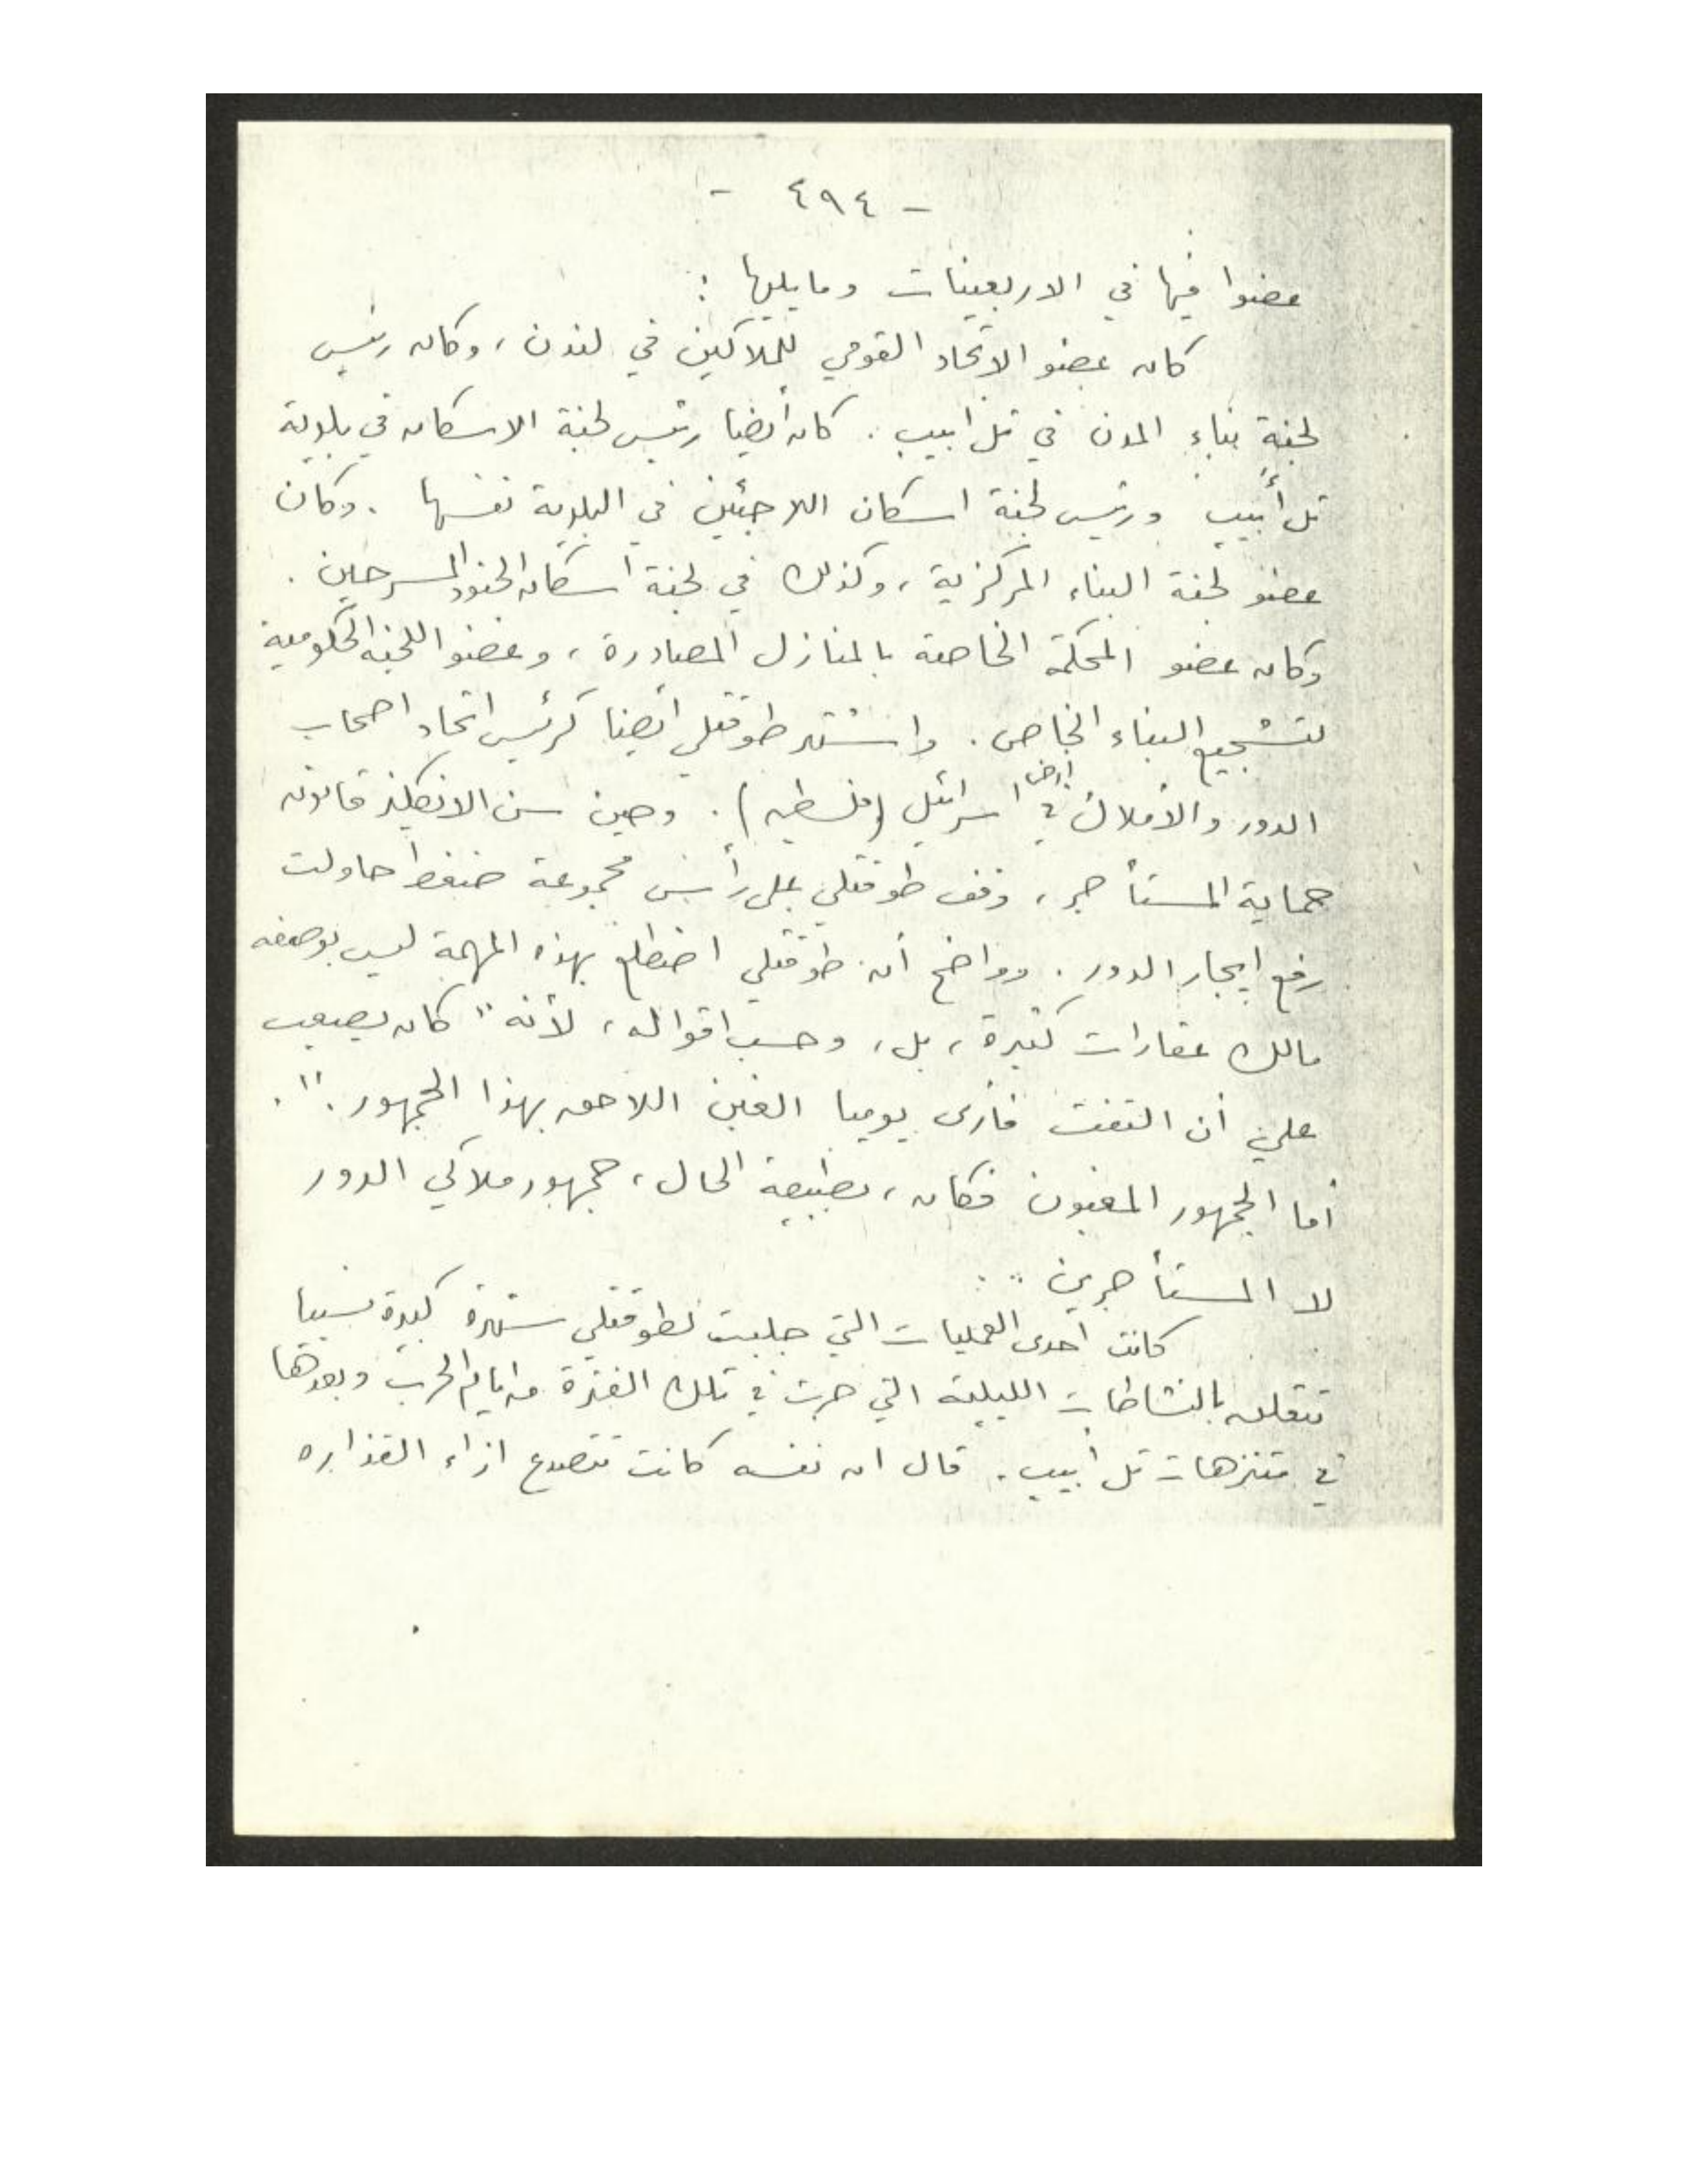 - ٤٩٤ -
عضوا فيها في الاربعينات ومايليها :
كان عضو الاتحاد القومي للملاكين في لندن ، وكان رئيس
لجنة بناء المدن في تل ابيب . كان أيضا رئيس لجنة الاسكان في بلدية
تل أبيب ورئيس لجنة اسكان اللاجئين في البلدية نفسها . وكان
عضو لجنة البناء المركزية ، وكذلك في لجنة اسكان الجنود المسرحين .
وكان عضو المحكمة الخاصة بالمنازل المصادرة ، وعضو اللجنة الحكومية
لتشجيع البناء الخاص . واشتهر طوقتلي أيضا كرئيس اتحاد اصحاب
الدور والأملاك في ارض اسرائيل (فلسطين) . وحين سن الانكليز قانون
حماية المستأجر ، وقف طوقتلي على رأس مجموعة ضغط حاولت
رفع ايجار الدور . وواضح أن طوقتلي اضطلع بهذه المهمة ليس بوصفه
مالك عقارات كثيرة ، بل ، وحسب اقواله ، لأنه " كان يصعب
علي أن التفت فأرى يوميا الغبن اللاحق بهذا الجمهور . " .
أما الجمهور المغبون فكان ، بطبيعة الحال ، جمهور ملاكي الدور
لا المستأجرين ..
كانت احدى العمليات التي جلبت لطوقتلي شهرة كبيرة نسبيا
تتعلق بالنشاطات الليلية التي جرت في تلك الفترة من ايام الحرب وبعدها
في متنزهات تل أبيب . قال ان نفسه كانت تتصدع ازاء القذاره